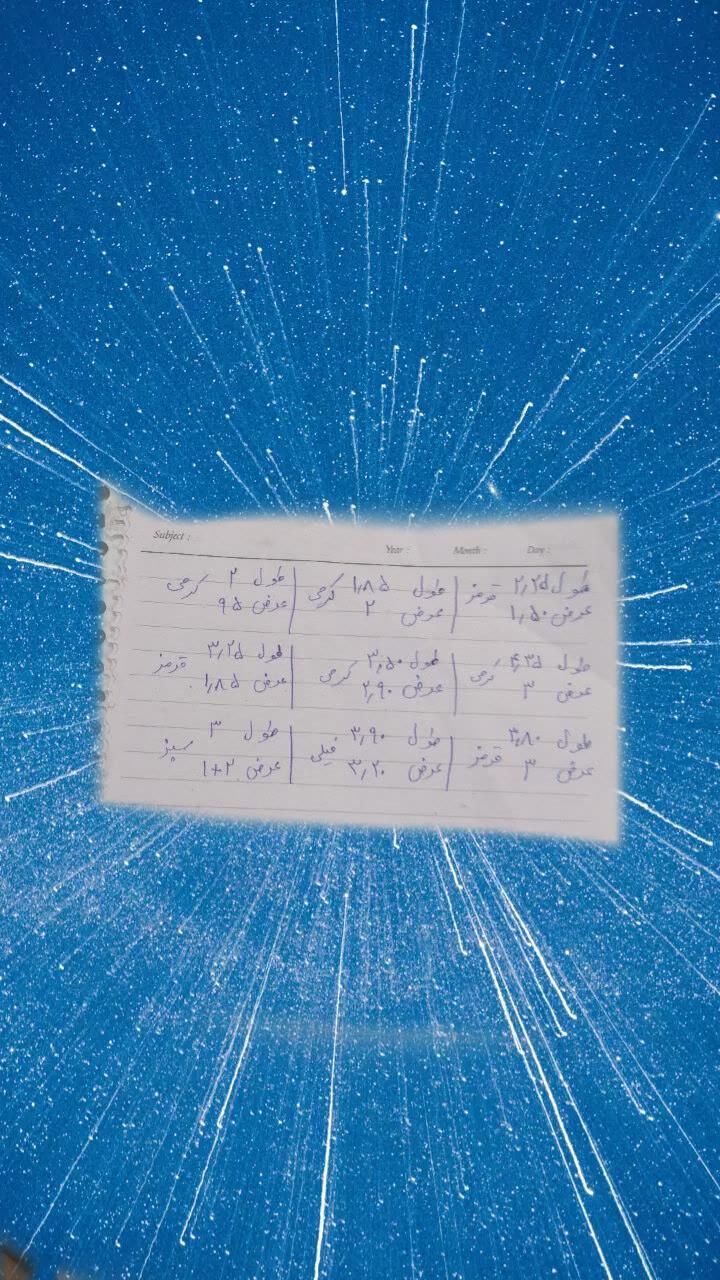 Subject :
Year : Month : Day :
طول ۲٫۲۵ قرمز
عرض ۱٫۵۰
طول ۱٫۸۵ کرمی
عرض ۲
طول ۲ کرمی
عرض ۹۵
طول ۴٫۳۵ کرمی
عرض ۳
طول ۳٫۵۰ کرمی
عرض ۲٫۹۰
طول ۳٫۲۵ قرمز
عرض ۱٫۸۵
طول ۳٫۸۰ قرمز
عرض ۳
طول ۳٫۹۰ فیلی
عرض ۳٫۲۰
طول ۳ سبز
عرض ۱+۲